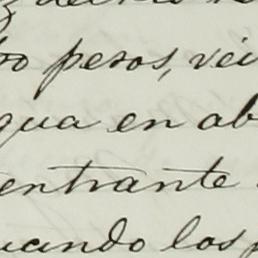 pesos, vei
gua en ab
entrante
uando los p